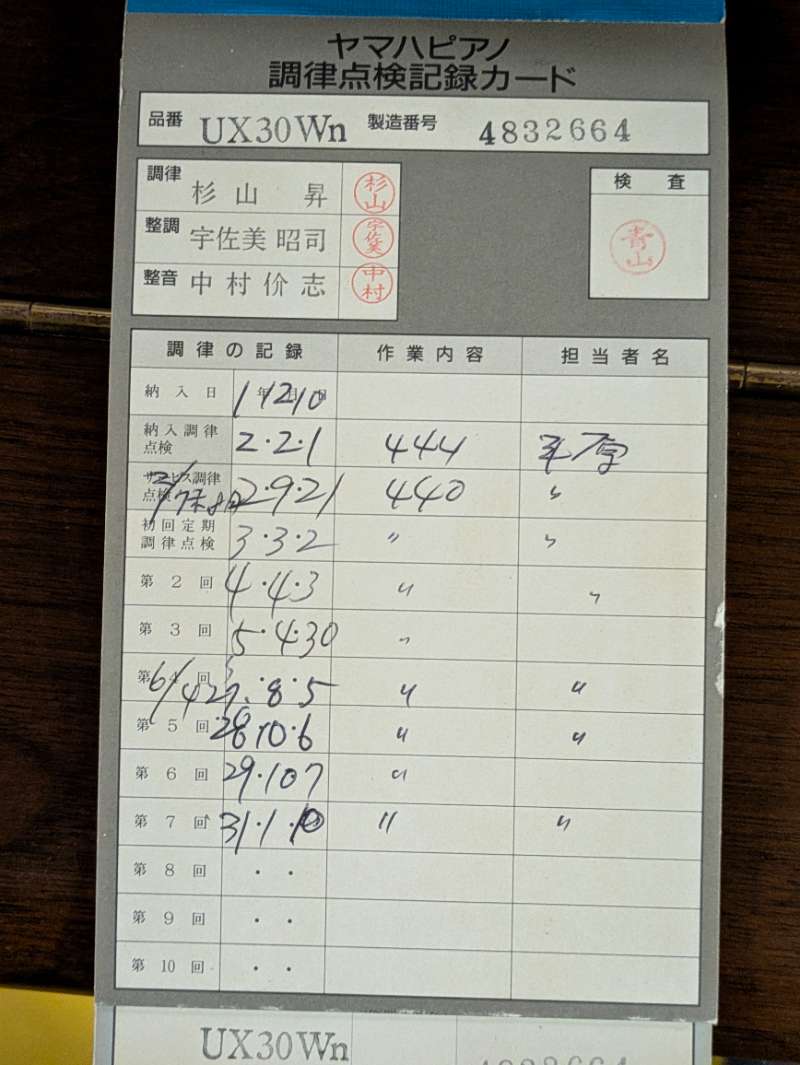 ヤマハピアノ
調律点検記録カード
品番 UX30Wn 製造番号 4832664
調律 杉山 昇 杉山
整調 宇佐美 昭司 宇佐美
整音 中村 价志 中村
検 査
青山
調律の記録 作業内容 担当者名
納入日 年 月 日 1 12 10
納入調律点検 2・2・1 444
サービス調律点検 2・9・21 440 〃
初回定期調律点検 3・3・2 〃 〃
第 2 回 4・4・3 〃 〃
第 3 回 5・4・30 〃
第 4 回 6/4 27・8・5 〃 〃
第 5 回 28 10・6 〃 〃
第 6 回 29・10 7 〃
第 7 回 31・1・10 〃 〃
第 8 回 ・ ・
第 9 回 ・ ・
第 10 回 ・ ・
UX30Wn 4832664